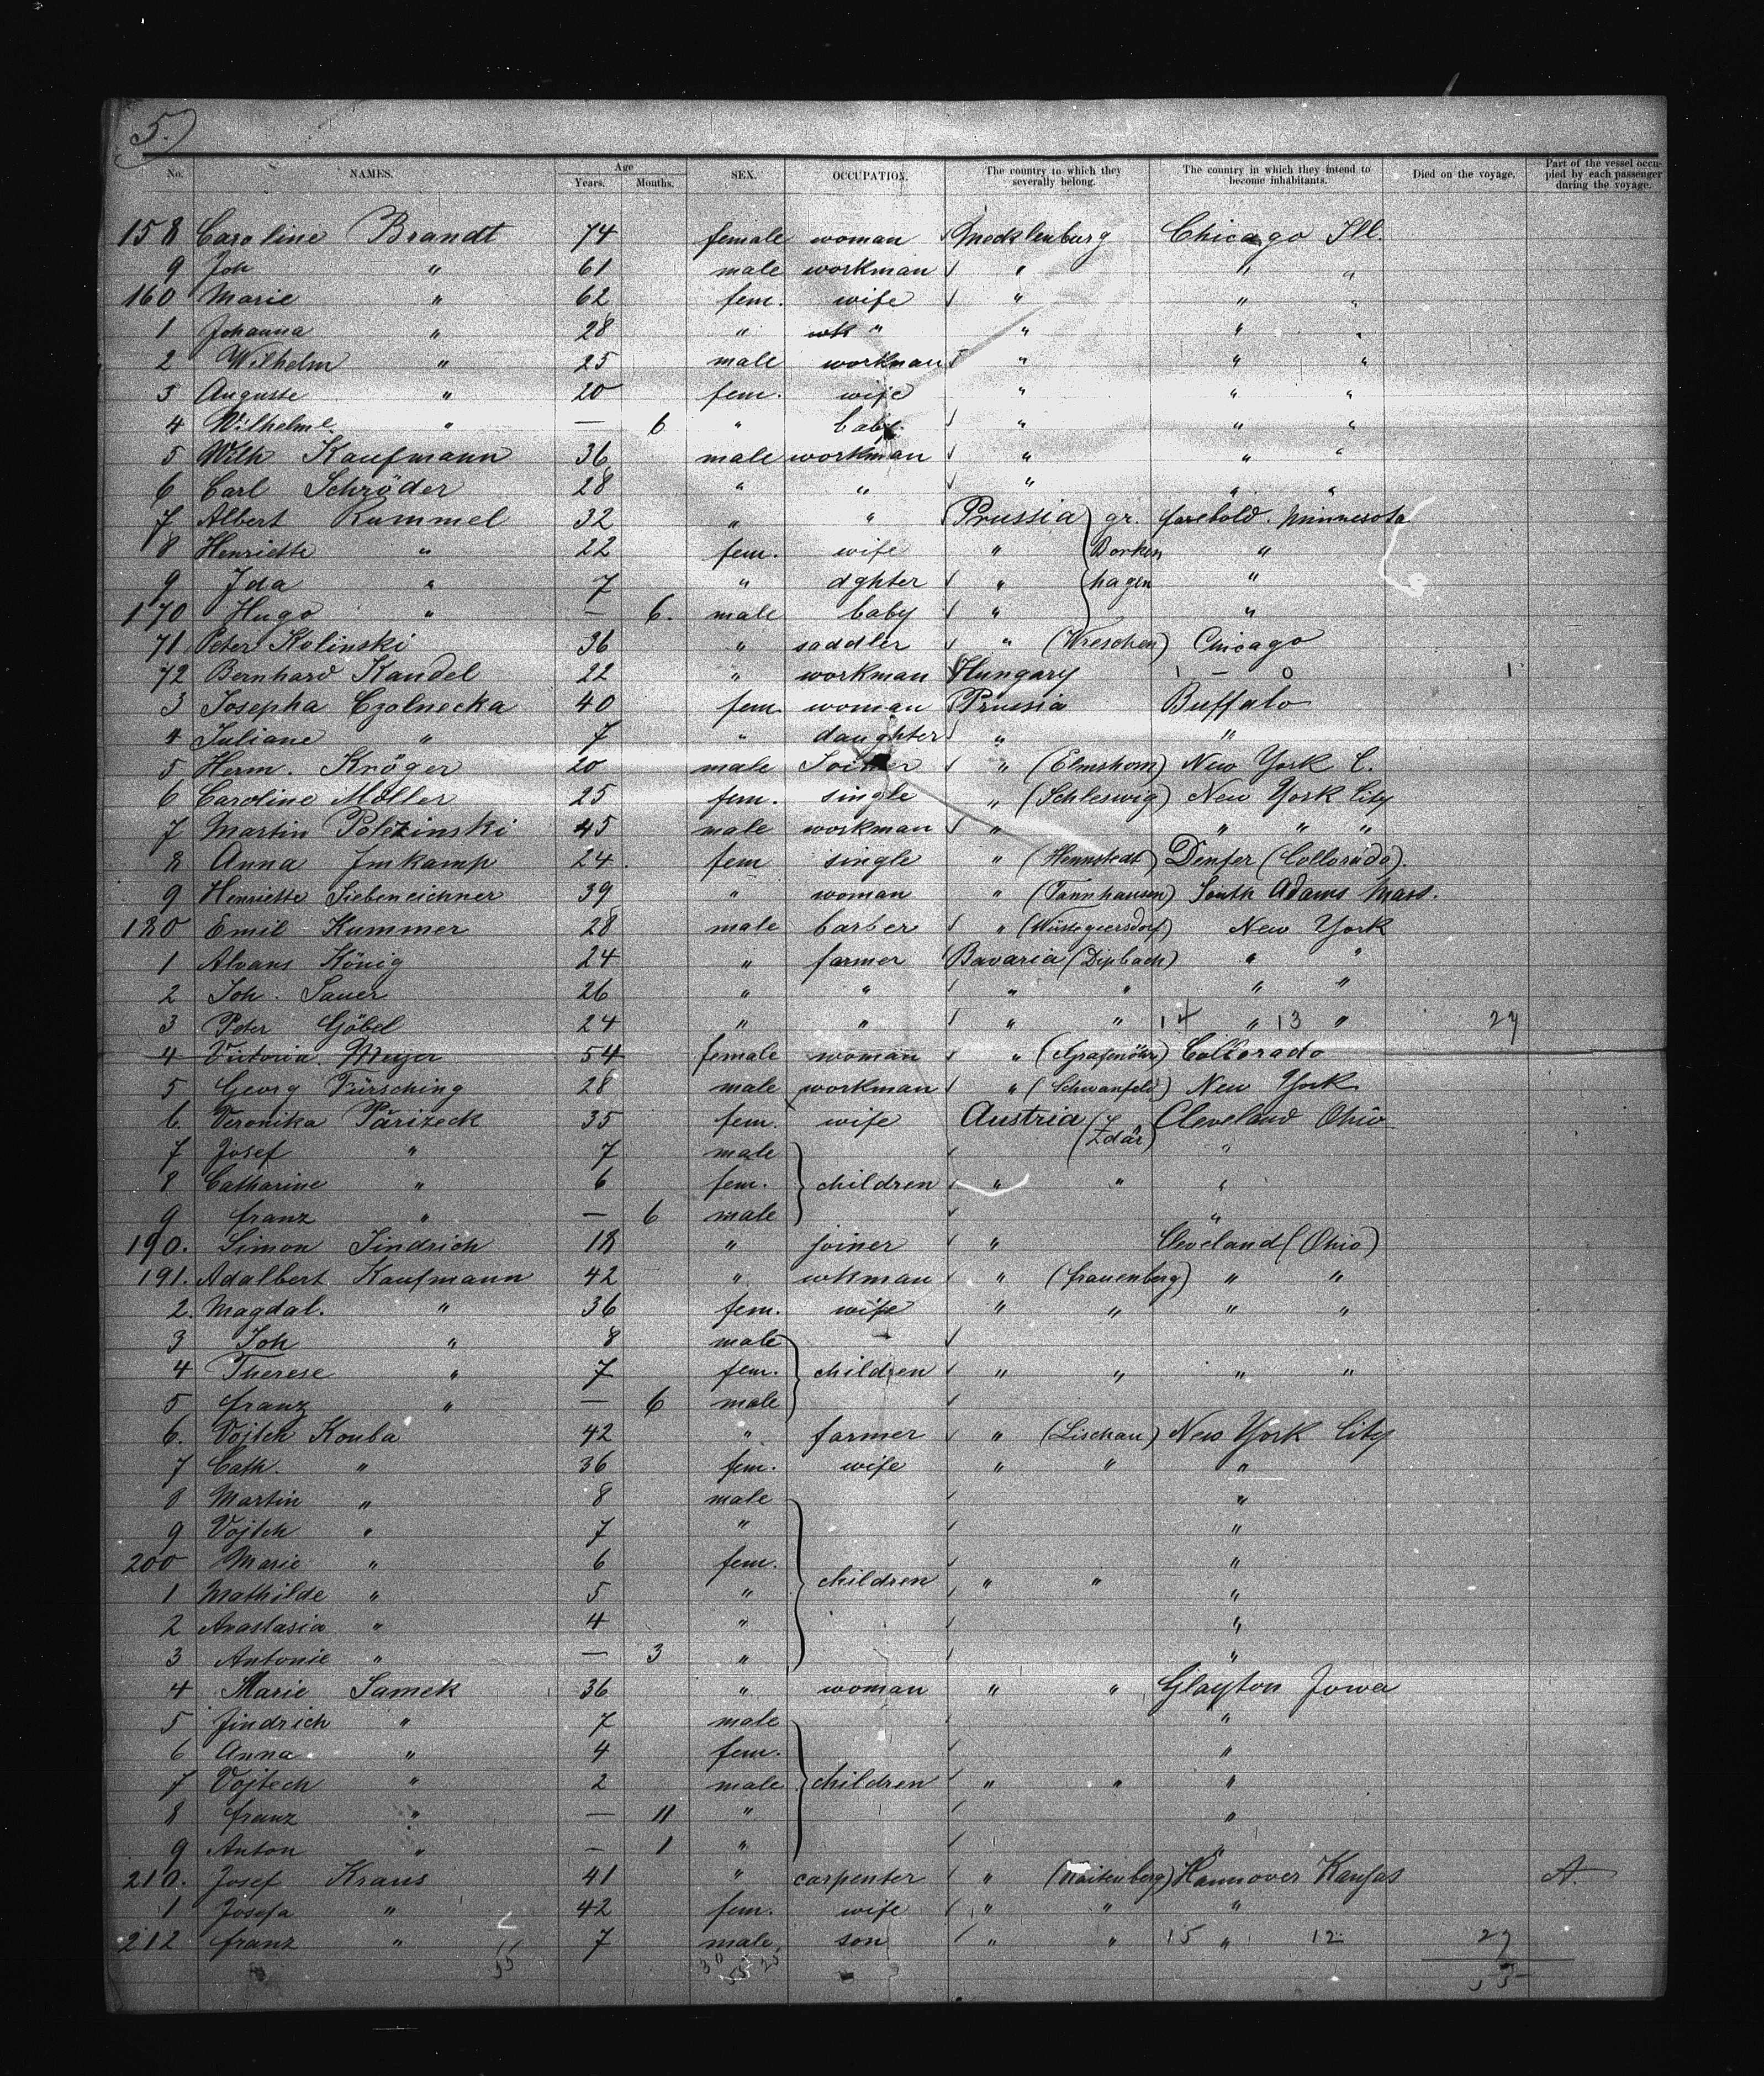 5.)
No. NAMES. Age Years. Months. SEX. OCCUPATION. The country to which they severally belong. The country in which they intend to become inhabitants. Died on the voyage. Part of the vessel occupied by each passenger during the voyage.
158 Caroline Brandt 74 female woman Mecklenburg Chicago Ill.
9 Joh " 61 male workman " " "
160 Marie " 62 fem. wife " " "
1 Johanna " 28 " wk " " " "
2 Wilhelm " 25 male workman " " "
3 Auguste " 20 fem. wife " " "
4 Wilhelme. " — 6 " baby " " "
5 Wilh Kaufmann 36 male workman " " "
6 Carl Schröder 28 " " " " "
7 Albert Rummel 32 " " Prussia gr. farebold. Minnesota
8 Henriette " 22 fem. wife " Borken "
9 Ida " 7 " dghter " hagen "
170 Hugo " — 6. male baby " "
71 Peter Kolinski 36 " saddler " (Wreschen) Chicago
72 Bernhard Kandel 22 " workman Hungary 1 — 0 1
3 Josepha Czolnecka 40 fem. woman Prussia Buffalo
4 Juliane " 7 " daughter " "
5 Herm. Kröger 20 male Joiner " (Elmshorn) New York C.
6 Caroline Möller 25 fem. single " (Schleswig) New York City
7 Martin Polezinski 45 male workman " " " "
8 Anna Imkamp 24. fem single " (Hennstedt) Denfer (Collorado).
9 Henriette Siebeneichner 39 " woman " (Tannhausen) South Adams Mass.
180 Emil Kummer 28 male barber " (Wüstegiersdorf) New York
1 Alvans König 24 " farmer Bavaria (Dipbach) " "
2 Joh. Sauer 26 " " " " " "
3 Peter Göbel 24 " " " " 14 " 13 " 27
4 Victoria Meyer 54 female woman " (Grafenöhr) Collorado
5 Georg Fürsching 28 male workman " (Schwanfeld) New York
6. Veronika Pärizeck 35 fem. wife Austria (Zdár) Cleveland Ohio
7 Josef " 7 male "
8 Catharine " 6 fem. children " " "
9 franz " — 6 male "
190. Simon Jindrich 18 " joiner " Cleveland (Ohio)
191. Adalbert Kaufmann 42 " wkman " (frauenberg) " "
2. Magdal. " 36 fem. wife " " " "
3 Joh " 8 male
4 Therese " 7 fem. children " " " "
5 franz " — 6 male
6. Vojteh Kouba 42 " farmer " (Lischau) New York City
7 Cath. " 36 fem. wife " " "
8 Martin " 8 male "
9 Vojteh " 7 " "
200 Marie " 6 fem. "
1 Mathilde " 5 " children " " "
2 Anastasia " 4 " "
3 Antonie " — 3 " "
4 Marie Samek 36 " woman " " Glayton Jowa
5 Jindrich " 7 male "
6 Anna " 4 fem. "
7 Vojtech " 2 male children " " "
8 franz " — 11 " "
9 Anton " — 1 " "
210. Josef Kraus 41 " carpenter " Hannover Kansas A.
1 Josefa " 42 fem. wife " " "
212 franz " 7 male son " " 15 " 12 27
55 30 55 25 55